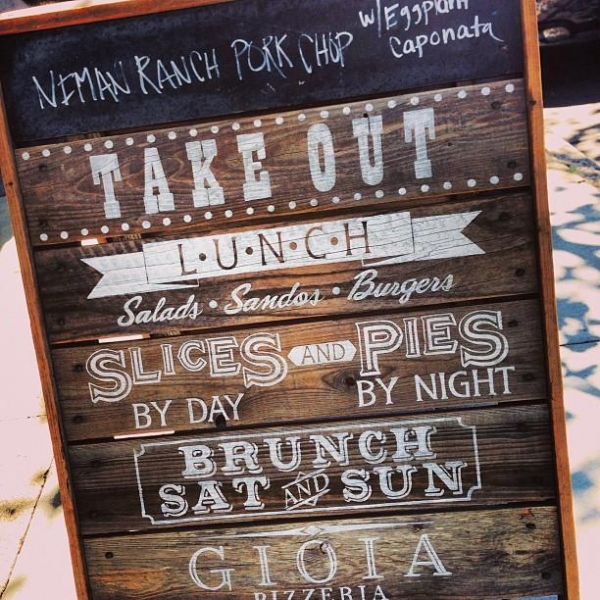 NIMAN RANCH PORK CHOP w/Eggplant
caponata
TAKE OUT
L·U·N·C·H
Salads · Sandos · Burgers
SLICES AND PIES
BY DAY BY NIGHT
BRUNCH
SAT AND SUN
GIOIA
PIZZERIA